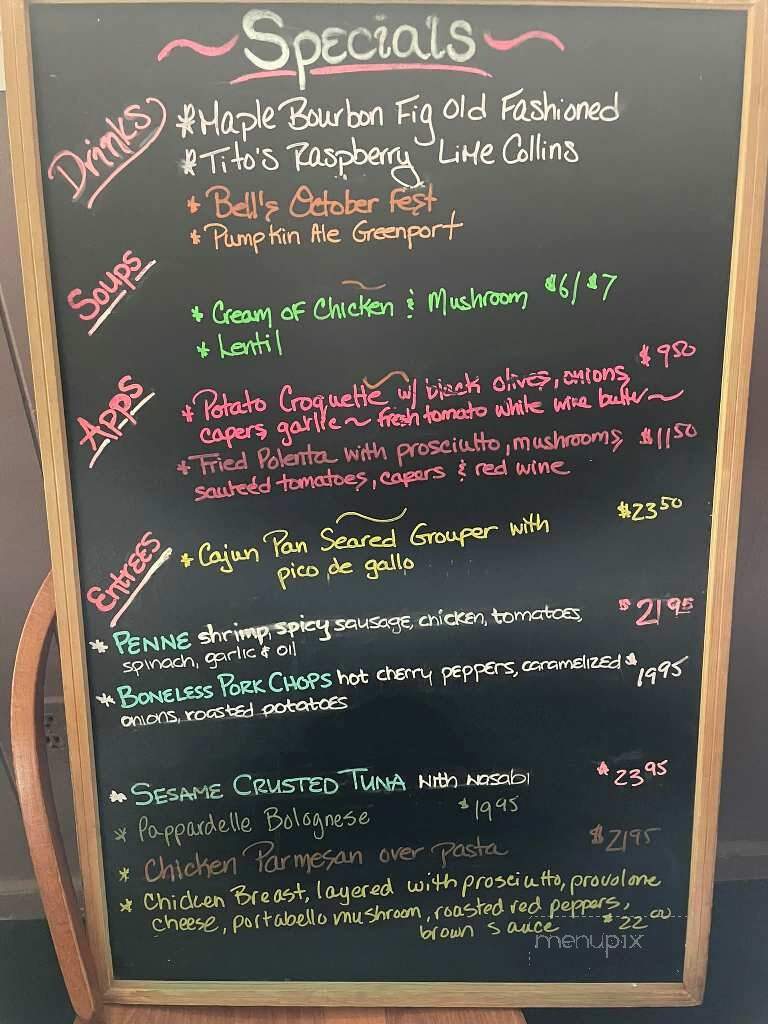 ~ Specials ~
Drinks
* Maple Bourbon Fig Old Fashioned
* Tito's Raspberry Lime Collins
* Bell's October Fest
* Pumpkin Ale Greenport
Soups
* Cream of Chicken & Mushroom $6/$7
* Lentil
Apps
* Potato Croquette w/ black olives, onions, $9.50
capers, garlic ~ fresh tomato white wine butter ~
* Fried Polenta with prosciutto, mushrooms, $11.50
sauteéd tomatoes, capers & red wine
Entrées
* Cajun Pan Seared Grouper with $23.50
pico de gallo
* PENNE shrimp, spicy sausage, chicken, tomatoes, $21.95
spinach, garlic & oil
* BONELESS PORK CHOPS hot cherry peppers, caramelized $19.95
onions, roasted potatoes
* SESAME CRUSTED TUNA with wasabi $23.95
* Pappardelle Bolognese $19.95
* Chicken Parmesan over pasta $21.95
* Chicken Breast, layered with prosciutto, provolone
cheese, portabello mushroom, roasted red peppers,
brown sauce $22.00
menupix